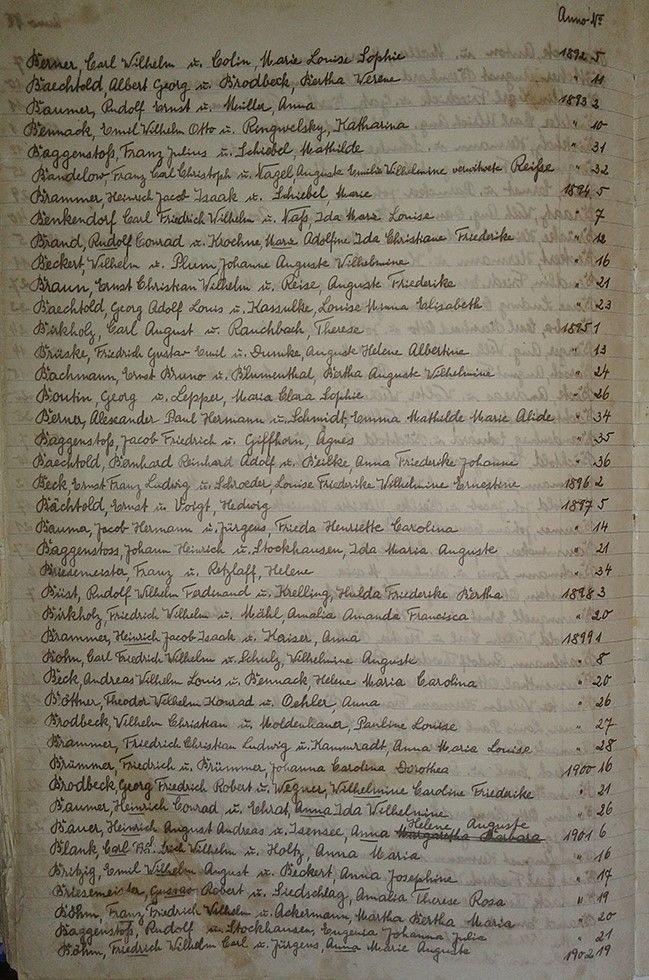 Anno No
Berner, Carl Wilhelm u. Colin, Marie Louise Sophie 1892 5
Baechtold, Albert Georg u. Brodbeck, Bertha Verene " 11
Baumer, Rudolf Ernst u. Miller, Anna 1893 2
Bennack, Emil Wilhelm Otto u. Ringwelsky, Katharina " 10
Baggenstoß, Franz Julius u. Schiebel, Mathilde " 31
Bandelow, Franz Carl Christoph u. Nagel Auguste Emilie Wilhelmine verwitwete Reiße " 32
Brammer, Heinrich Jacob Isaak u. Schiebel, Marie 1894 5
Benkendorf, Carl Friedrich Wilhelm u. Naß, Ida Marie Louise " 7
Brand, Rudolf Conrad u. Krochne, Marie Adolfine Ida Christiane Friederike " 12
Beckert, Wilhelm u. Plum, Johanne Auguste Vilhelmine " 16
Braun, Ernst Christian Wilhelm u. Reise, Auguste Friederike " 21
Baechtold, Georg Adolf Louis u. Kassulke, Louise Minna Elisabeth " 23
Birkholz, Carl August u. Rauchbach, Therese 1895 1
Brüske, Friedrich Gustav Emil u. Dumke, Auguste Helene Albertine " 13
Bachmann, Ernst Bruno u. Blumenthal, Bertha Auguste Wilhelmine " 24
Boutin, Georg u. Lepper, Maria Clara Sophie " 26
Berner, Alexander Paul Hermann u. Schmidt, Emma Mathilde Marie Alide " 34
Baggenstoß, Jacob Friedrich u. Giffhorn, Agnes " 35
Baechtold, Bernhard Reinhard Adolf u. Beilke, Anna Friederike Johanne " 36
Beck, Ernst Franz Ludwig u. Schroeder, Louise Friederike Wilhelmine Ernestine 1896 2
Bächtold, Ernst u. Voigt, Hedwig 1897 5
Bauma, Jacob Hermann u. Jürgens, Frieda Henriette Carolina " 14
Baggenstoss, Johann Heinrich u. Stockhausen, Ida Maria Auguste " 21
Briesemeister, Franz u. Retzlaff, Helene " 34
Büst, Rudolf Wilhelm Ferdinand u. Krelling, Hulda Friederike Bertha 1898 3
Birkholz, Friedrich Wilhelm u. Mähl, Amalia Amanda Francisca " 20
Brammer, Heinrich Jacob Isaak u. Kaiser, Anna 1899 1
Böhm, Carl Friedrich Wilhelm u. Schulz, Wilhelmine Auguste " 8
Beck, Andreas Wilhelm Louis u. Bennack, Helene Maria Carolina " 20
Böttner, Theodor Wilhelm Konrad u. Oehler, Anna " 26
Brodbeck, Vilhelm Christian u. Moldenhauer, Pauline Louise " 27
Brammer, Friedrich Christian Ludwig u. Kammradt, Anna Maria Louise " 28
Brümmer, Friedrich u. Brümmer, Johanna Carolina Dorothea 1900 16
Brodbeck, Georg Friedrich Robert u. Wegner, Wilhelmine Caroline Friederike " 21
Baumer, Heinrich Conrad u. Ehrat, Anna Ida Wilhelmine " 26
Helene Auguste
Bauer, Heinrich August Andreas u. Isensee, Anna Margaretha Barbara 1901 6
Blank, Carl Wilhelm u. Holtz, Anna Maria " 16
Britzig, Emil Wilhelm August u. Beckert, Anna Josephine " 17
Briesemeister, Gustav Robert u. Liedschlag, Amalia Therese Rosa " 19
Böhm, Franz Friedrich Vilhelm u. Ackermann, Martha Bertha Maria " 20
Baggenstoß, Rudolf u. Stockhausen, Eugenia Johanna Julia " 21
Böhm, Friedrich Wilhelm Carl u. Jürgens, Anna Marie Auguste 1902 19